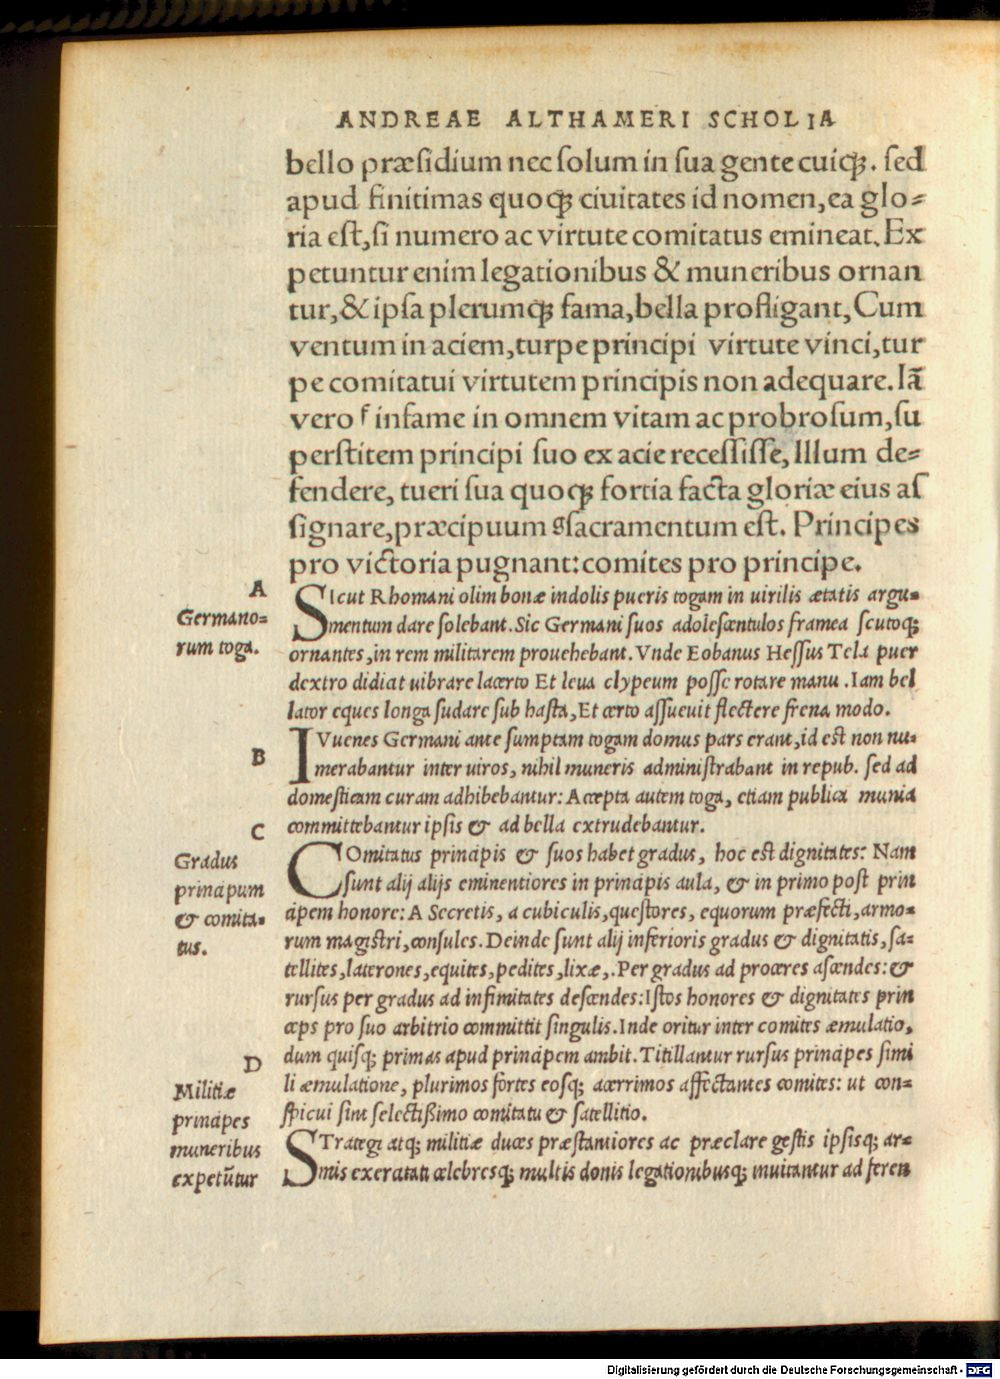 ANDREAE ALTHAMERI SCHOLIA
bello præſidium nec ſolum in ſua gente cuiqꝫ. ſed
apud finitimas quoqꝫ ciuitates id nomen, ea glo⸗
ria eſt, ſi numero ac virtute comitatus emineat. Ex
petuntur enim legationibus & muneribus ornan
tur, & ipſa plerumqꝫ fama, bella profligant, Cum
ventum in aciem, turpe principi virtute vinci, tur
pe comitatui virtutem principis non adequare. Iā
vero f infame in omnem vitam ac probroſum, ſu
perſtitem principi ſuo ex acie receſſiſſe, Illum de⸗
fendere, tueri ſua quoqꝫ fortia facta gloriæ eius aſ
ſignare, præcipuum g ſacramentum eſt. Principes
pro victoria pugnant: comites pro principe.
A
Germano⸗
rum toga.
SIcut Rhomani olim bonæ indolis pueris togam in uirilis ætatis argu⸗
mentum dare ſolebant. Sic Germani ſuos adoleſcentulos framea ſcutoqꝫ
ornantes, in rem militarem prouehebant. Vnde Eobanus Heſſus Tela puer
dextro didiat uibrare lacerto Et leua clypeum poſſe rotare manu. Iam bel
lator eques longa ſudare ſub haſta, Et certo aſſueuit flectere frena modo.
B
IVuenes Germani ante ſumptam togam domus pars erant, id eſt non nu⸗
merabantur inter uiros, nihil muneris adminiſtrabant in repub. ſed ad
domeſticam curam adhibebantur: Accepta autem toga, etiam publica munia
committebantur ipſis & ad bella extrudebantur.
C
Gradus
principum
& comita⸗
tus.
COmitatus principis & ſuos habet gradus, hoc eſt dignitates: Nam
ſunt alij alijs eminentiores in principis aula, & in primo poſt prin
cipem honore: A Secretis, a cubiculis, queſtores, equorum præfecti, armo⸗
rum magiſtri, conſules. Deinde ſunt alij inferioris gradus & dignitatis, ſa⸗
tellites, laterones, equites, pedites, lixæ,. Per gradus ad proceres aſcendes: &
rurſus per gradus ad infimitates deſcendes: Iſtos honores & dignitates prin
ceps pro ſuo arbitrio committit ſingulis. Inde oritur inter comites æmulatio,
dum quiſqꝫ primas apud principem ambit. Titillantur rurſus principes ſimi
li æmulatione, plurimos fortes eoſqꝫ acerrimos affectantes comites: ut con⸗
ſpicui ſint ſelectißimo comitatu & ſatellitio.
D
Militiæ
principes
muneribus
expetūtur
STrategi atqꝫ militiæ duces præſtantiores ac præclare geſtis ipſisqꝫ ar⸗
mis exercitati celebresqꝫ multis donis legationibusqꝫ inuitantur ad feren
Digitalisierung gefördert durch die Deutsche Forschungsgemeinschaft - DFG